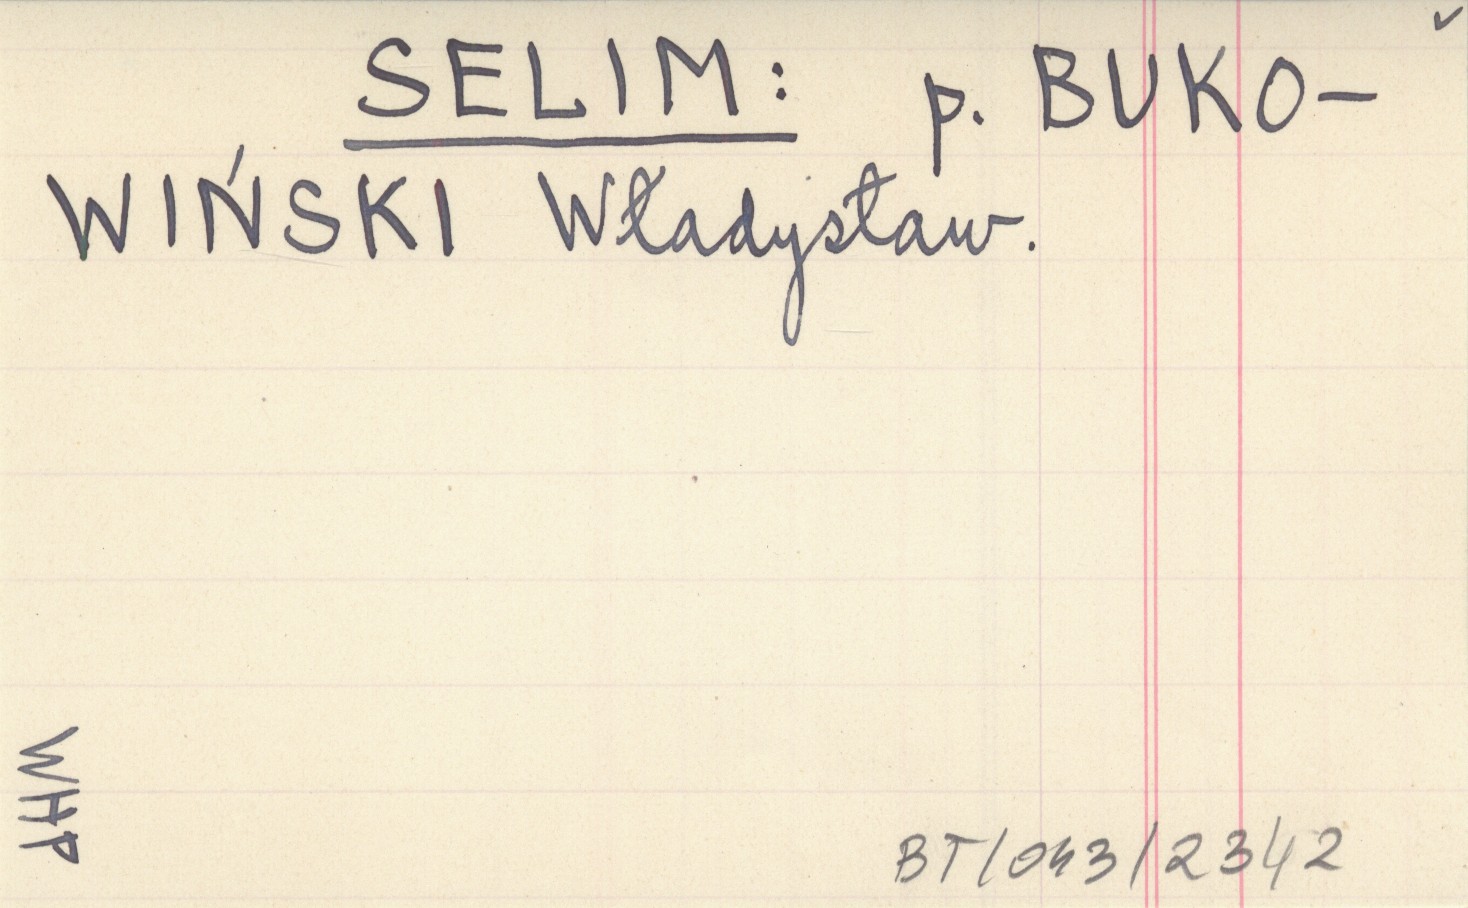 SELIM: p. BUKO-
WIŃSKI Władysław.
WHP
BT/043/2342